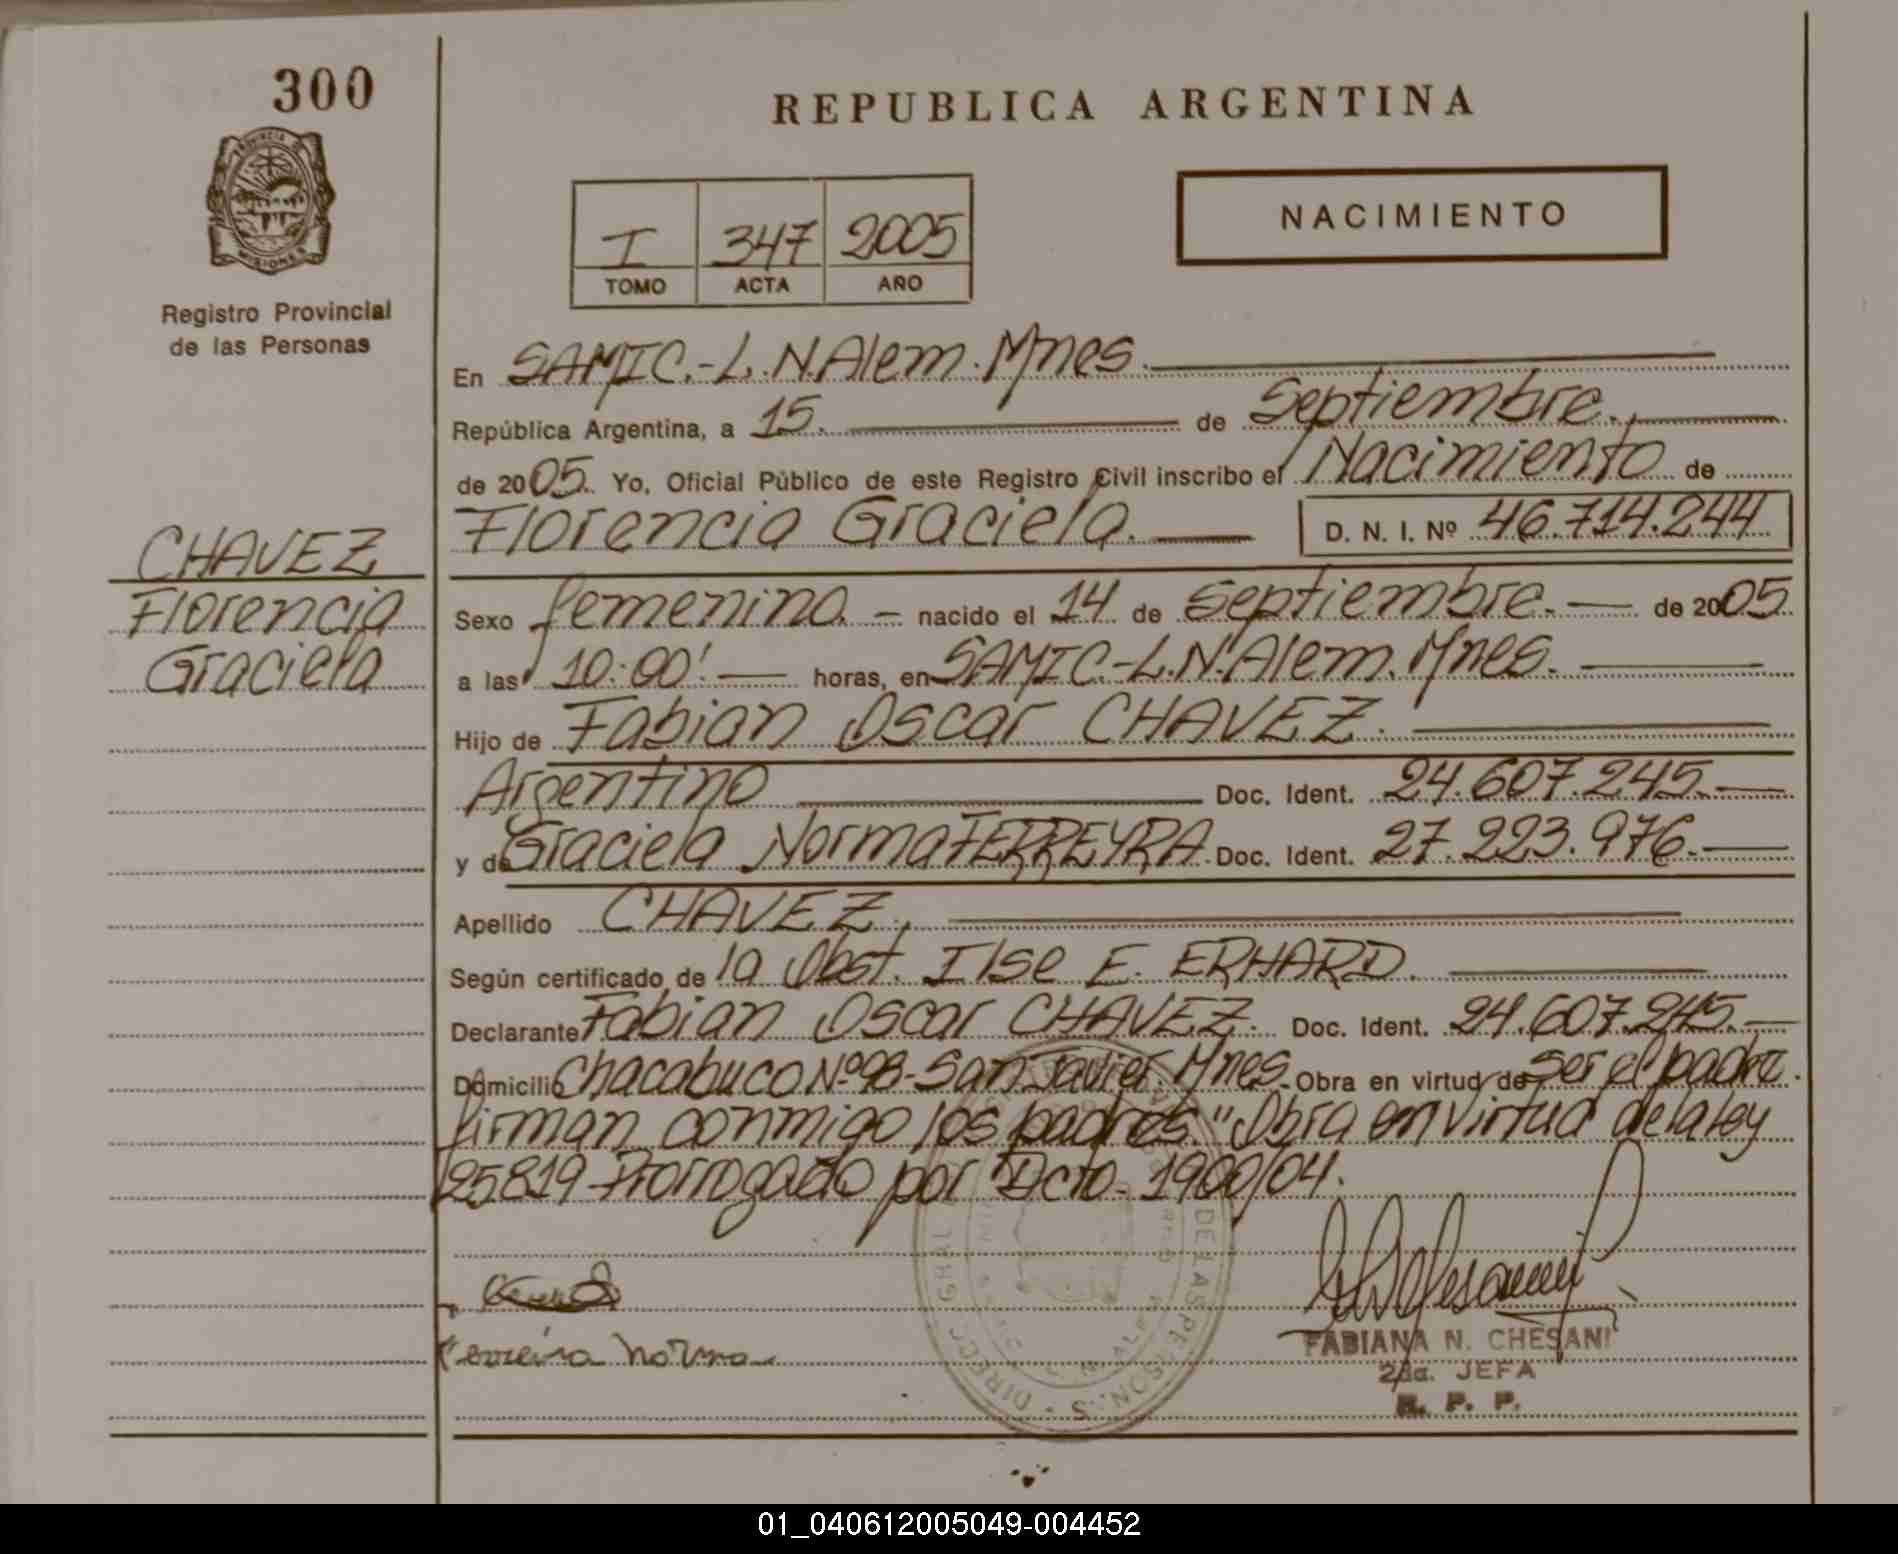 300
PROVINCIA DE
MISIONES
Registro Provincial
de las Personas
CHAVEZ
Florencia
Graciela
REPUBLICA ARGENTINA
I 347 2005
TOMO ACTA AÑO
NACIMIENTO
En SAMIC.-L.N.Alem. Mnes.
República Argentina, a 15. de Septiembre.
de 2005. Yo, Oficial Público de este Registro Civil inscribo el Nacimiento de
Florencia Graciela. D. N. I. Nº 46.714.244
Sexo femenino. - nacido el 14 de septiembre. de 2005
a las 10:00'. horas, en SAMIC.-L.N.Alem. Mnes.
Hijo de Fabian Oscar CHAVEZ.
Argentino Doc. Ident. 24.607.245.
y de Graciela Norma FERREYRA. Doc. Ident. 27.223.976.
Apellido CHAVEZ.
Según certificado de la Obst. Ilse E. ERHARD.
Declarante Fabian Oscar CHAVEZ. Doc. Ident. 24.607.245.
Domicilio Chacabuco Nº98-San Javier. Mnes. Obra en virtud de ser el padre.
firman conmigo los padres. "Obra en virtud de la ley
25819-Prorrogado por Dcto. 1900/04.
Ferreira Norma
FABIANA N. CHESANI
2da. JEFA
R. P. P.
01_040612005049-004452